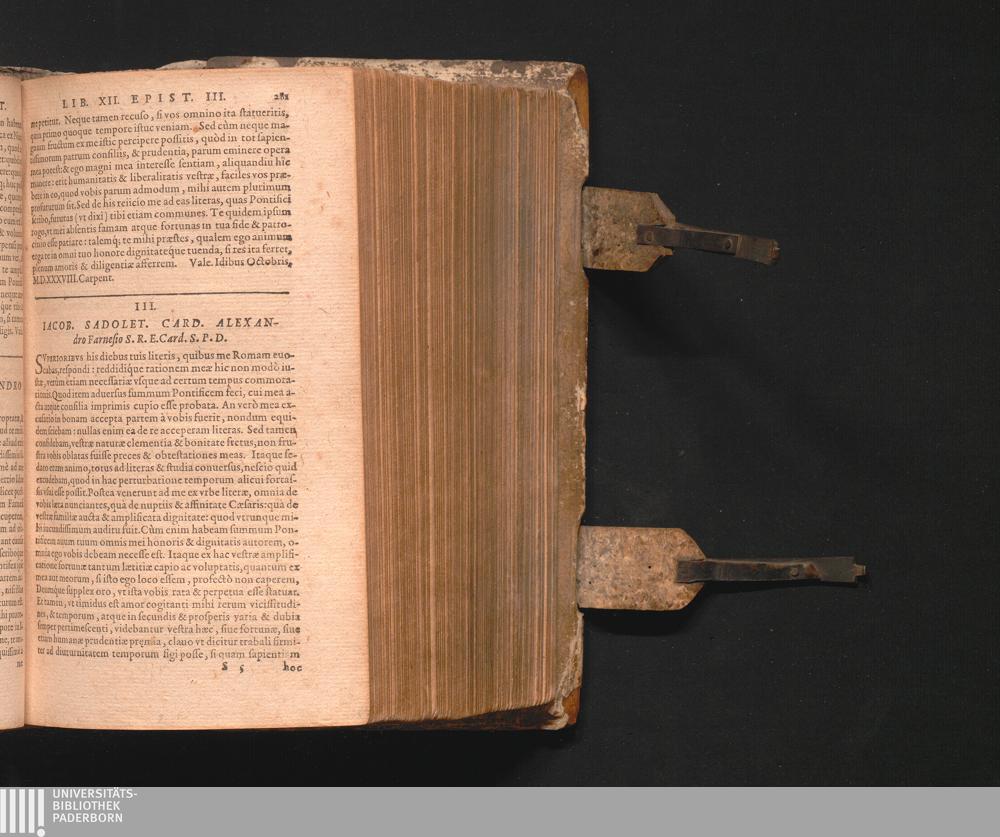 LIB. XII. EPIST. III. 281
me petitur. Neque tamen recuso, si vos omnino ita statueritis,
quin primo quoque tempore istuc veniam. Sed cùm neque ma-
gnum fructum ex me istic percipere possitis, quòd in tot sapien-
tissimorum patrum consiliis, & prudentia, parum eminere opera
mea potest: & ego magni mea interesse sentiam, aliquandiu hîc
manere: erit humanitatis & liberalitatis vestræ, faciles vos præ-
bere in eo, quod vobis parum admodum, mihi autem plurimum
profuturum sit. Sed de his reiicio me ad eas literas, quas Pontifici
scribo, futuras (vt dixi) tibi etiam communes. Te quidem ipsum
rogo, vt mei absentis famam atque fortunas in tua fide & patro-
cinio esse patiare: talemq; te mihi præstes, qualem ego animum
erga te in omni tuo honore dignitatéque tuenda, si res ita ferret,
plenum amoris & diligentiæ afferrem. Vale. Idibus Octobris,
M.D.XXXVIII. Carpent.
III.
IACOB. SADOLET. CARD. ALEXAN-
dro Farnesio S. R. E. Card. S. P. D.
SVPERIORIBVS his diebus tuis literis, quibus me Romam euo-
cabas, respondi: reddidíque rationem meæ hic non modò iu-
stæ, verùm etiam necessariæ vsque ad certum tempus commora-
tionis. Quod item aduersus summum Pontificem feci, cui mea a-
cta atque consilia imprimis cupio esse probata. An verò mea ex-
cusatio in bonam accepta partem à vobis fuerit, nondum equi-
dem sciebam: nullas enim ea de re acceperam literas. Sed tamen
confidebam, vestræ naturæ clementia & bonitate fretus, non fru-
stra vobis oblatas fuisse preces & obtestationes meas. Itaque se-
dato etum animo, totus ad literas & studia conuersus, nescio quid
excudebam, quod in hac perturbatione temporum alicui fortas-
sis vsui esse possit. Postea venerunt ad me ex vrbe literæ, omnia de
vobis læta nunciantes, quà de nuptiis & affinitate Cæsaris: quà de
vestræ familiæ aucta & amplificata dignitate: quod vtrunque mi-
hi iucundissimum auditu fuit. Cùm enim habeam summum Pon-
tificem auum tuum omnis mei honoris & dignitatis autorem, o-
mnia ego vobis debeam necesse est. Itaque ex hac vestræ amplifi-
catione fortunæ tantum lætitiæ capio ac voluptatis, quantum ex
mea aut meorum, si isto ego loco essem, profectò non caperem,
Deumque supplex oro, vt ista vobis rata & perpetua esse statuat.
Et tamen, vt timidus est amor cogitanti mihi rerum vicissitudi-
nes, & temporum, atque in secundis & prosperis varia & dubia
semper pertimescenti, videbantur vestra hæc, siue fortunæ, siue
etiam humanæ prudentiæ præmia, clauo vt dicitur trabali firmi-
ter ad diuturnitatem temporum figi posse, si quam sapientiam
S 5 hoc
UNIVERSITÄTS-
BIBLIOTHEK
PADERBORN